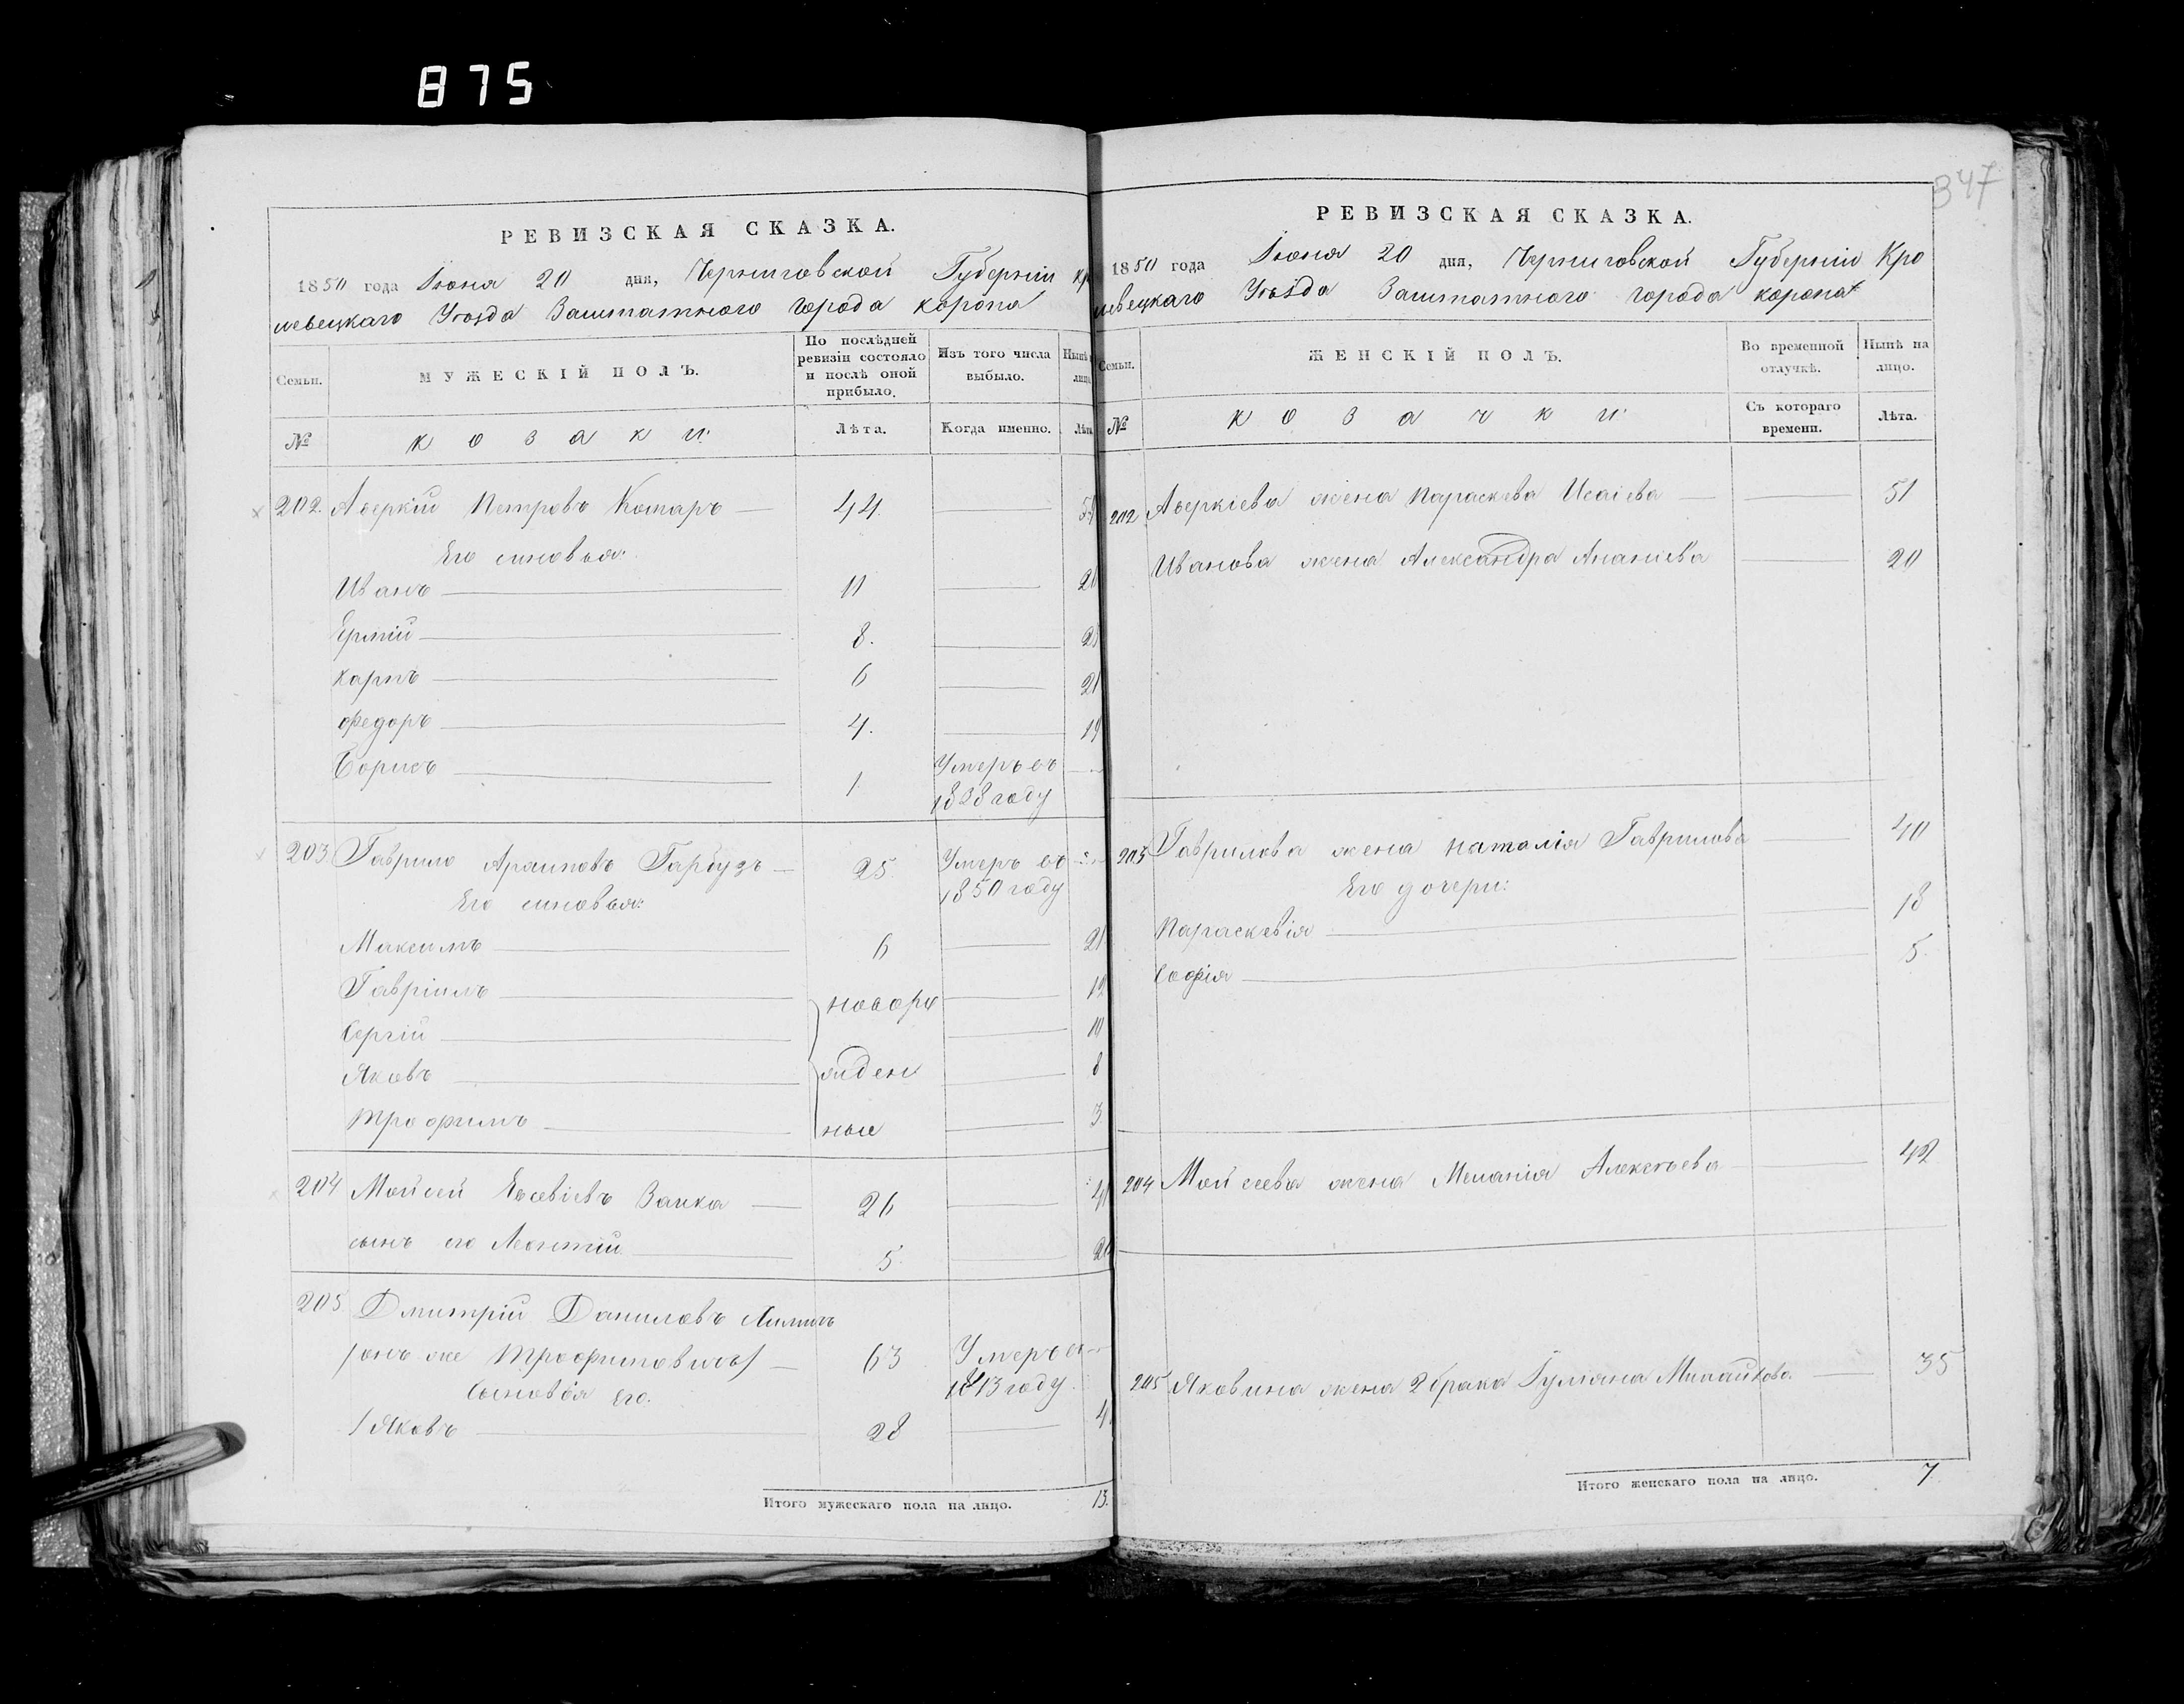 875
347
РЕВИЗСКАЯ СКАЗКА.
1850 года Июня 20 дня, Черниговской Губерніи Кро
левецкаго Уѣзда Заштатного города коропа
Семьи.
МУЖЕСКІЙ ПОЛЪ.
По послѣдней ревизіи состояло и послѣ оной прибыло.
Изъ того числа выбыло.
Нынѣ
лицо
№
козаки
Лѣта.
Когда именно.
Лѣта
202. Аверкій Петровъ Комаръ 44.
Его сыновья:
Иванъ 11
Ермій 8.
Карпъ 6
Федоръ 4.
Борисъ 1 Умеръ въ
1838 году
203 Гаврило Архиповъ Гарбузъ 25. Умеръ въ
Его сыновья: 1850 году
Максимъ 6 21
Гавріилъ новорож 12
Сергій 10
Яковъ жден 8
Трофимъ ные 3
204 Мойсей Евсевіевъ Заика 26
сынъ его Леонтій 5.
205. Дмитрій Даниловъ
/онъ же Трофимовичъ/ 63 Умеръ въ
Сыновья его. 1843 году
/Яковъ 28
Итого мужескаго пола на лицо. 13.
РЕВИЗСКАЯ СКАЗКА.
1850 года Июня 20 дня, Черниговской Губерніи Кро
левецкаго Уѣзда Заштатного города коропа
Семьи.
ЖЕНСКІЙ ПОЛЪ.
Во временной отлучкѣ.
Нынѣ на лицо.
№
козачки
Съ котораго времени.
Лѣта.
202 Аверкіева жена Параскева Исаіева 51
Иванова жена Александра Ананіева 20
203 Гаврилова жена Наталія Гаврилова 40
Его дочери:
Параскевія 18
Софія 5.
204 Мойсеева жена Меланія Алексѣева 42
205 Яковина жена 2 брака Гуліяна 35
Итого женскаго пола на лицо. 7